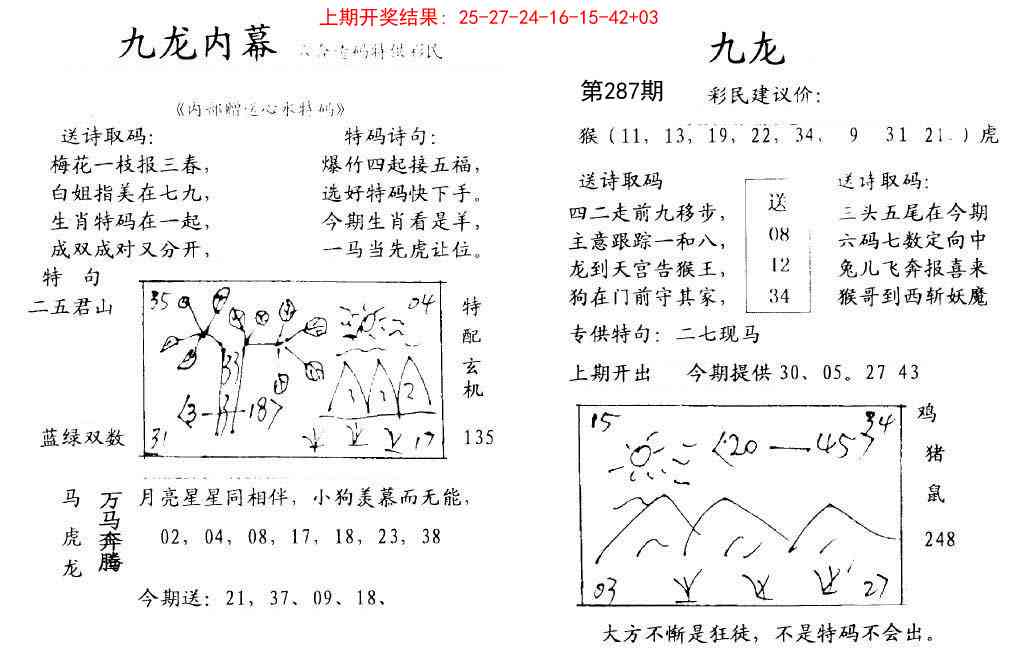 上期开奖结果：25-27-24-16-15-42+03
九龙内幕
《内部赠送心水特码》
送诗取码：
梅花一枝报三春，
白姐指美在七九，
生肖特码在一起，
成双成对又分开，
特码诗句：
爆竹四起接五福，
选好特码快下手。
今期生肖看是羊，
一马当先虎让位。
特 句
二五君山
蓝绿双数
35
04
33
<3-3-187>
1 1 2
31
17
特配玄机
135
马虎龙
万马奔腾
月亮星星同相伴，小狗羡慕而无能，
02，04，08，17，18，23，38
今期送：21，37、09、18、
九龙
第287期 彩民建议价：
猴（11，13，19，22，34， 9 31 21.）虎
送诗取码
四二走前九移步，
主意跟踪一和八，
龙到天宫告猴王，
狗在门前守其家，
送
08
12
34
送诗取码：
三头五尾在今期
六码七数定向中
兔儿飞奔报喜来
猴哥到西斩妖魔
专供特句：二七现马
上期开出 今期提供 30、05。27 43
15
34
<20—45>
03
27
鸡
猪
鼠
248
大方不惭是狂徒，不是特码不会出。